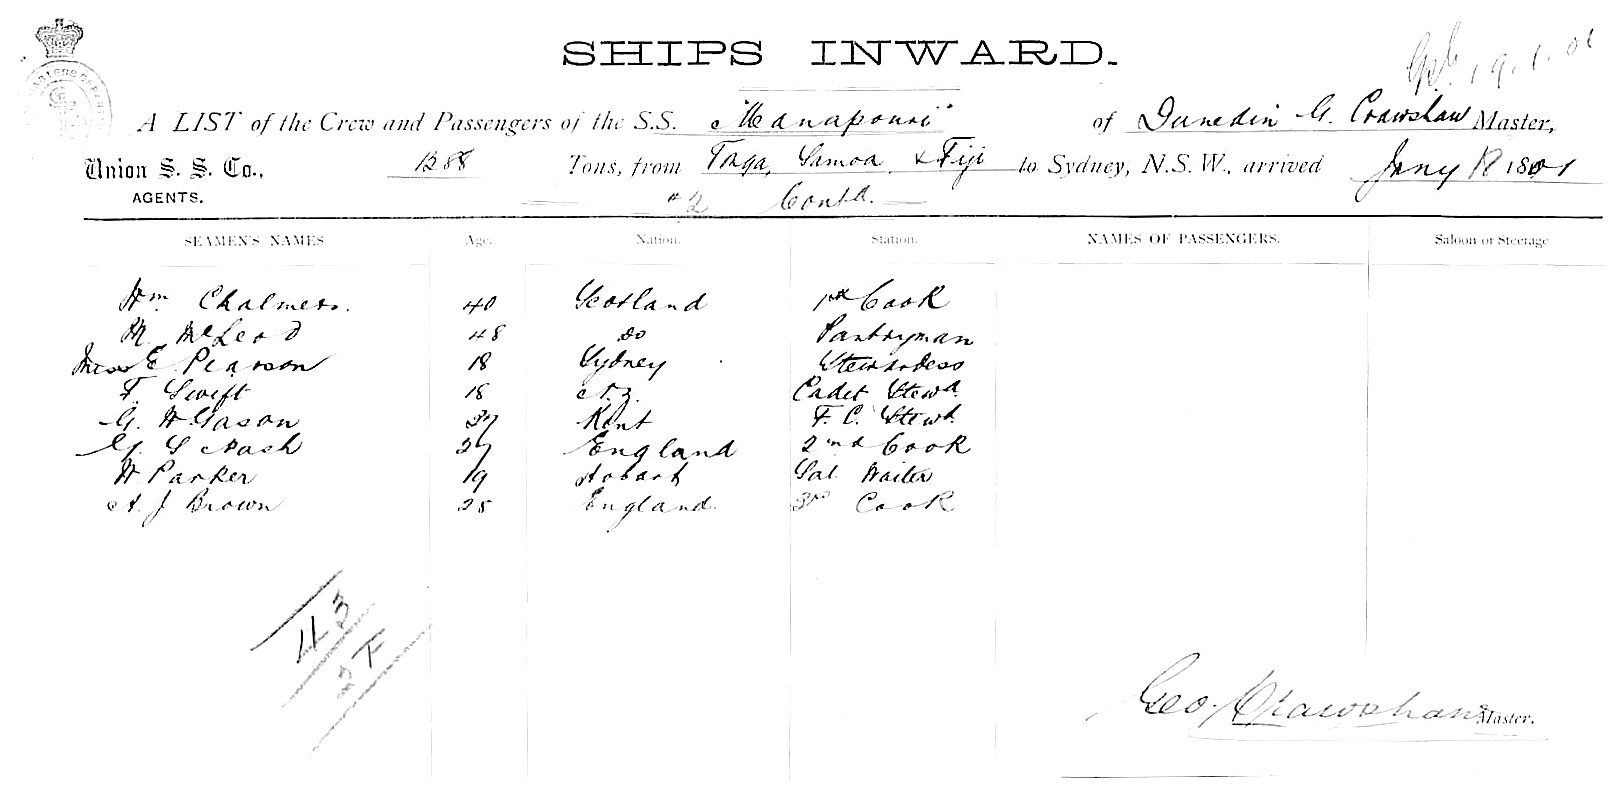 SHIPS INWARD.
A LIST of the Crew and Passengers of the S.S. "Manapouri" of Dunedin G. Crawshaw Master,
Union S. S. Co., 1288 Tons, from Toga, Samoa, & Fiji to Sydney, N.S.W., arrived Jany 18 1801
AGENTS. #2 Contd.
SEAMEN'S NAMES Age. Nation. Station. NAMES OF PASSENGERS. Saloon or Steerage
Wm Chalmers. 40 Scotland 1st Cook
M. McLeod 48 do Pantryman
Miss E Pearson 18 Sydney Stewardess
F. Swift 18 N.Z. Cadet Stewd.
G. W. Gason 37 Kent F. C. Stewd.
G. S Nash 27 England 2nd Cook
W Parker 19 Hobart Sal Waiter
A. J Brown 25 England. 3rd Cook
43
2 F
Geo. Crawshaw Master.